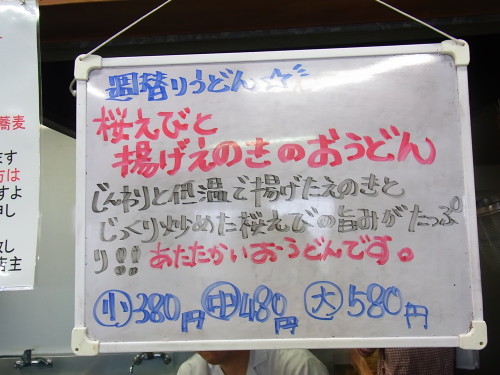 週替りうどん
桜えびと
揚げえのきのおうどん
じんわりと低温で揚げたえのきと
じっくり炒めた桜えびの旨みがたっぷ
り!!あたたかいおうどんです。
小380円 中480円 大580円
蕎麦
ます
方は
すよ
申し
致し
店主